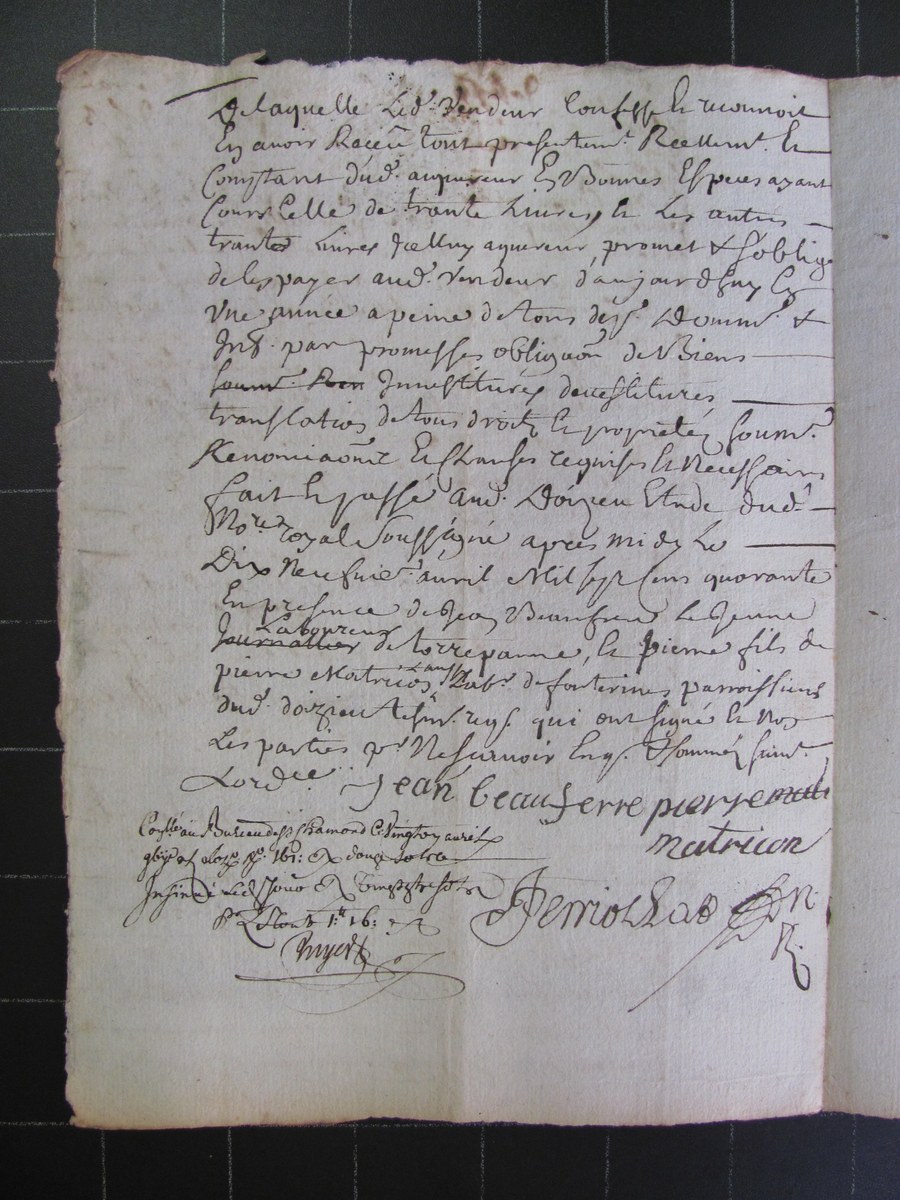 de laquelle led. vendeur confesse et reconnoit
En avoir Receu tout presentemt. Reellemt. Et
Comptant dud. aquereur En Bonnes Especes ayant
Cours Celle de trante Livres, et Les autres
trante Livres Icelluy aquereur promet & s'oblige
de les payer aud. vendeur d'aujourdhuy En
une année a peine de tous dep. domm. &
Int. par promesses obligaôn de Biens
soum. Ren Investitures devestitures
translation de tous droits et proprietez soum.
Renonciaôns Et Clauses requises et Necessaires
fait et passé aud. doizieu Etude dud.
Nore. royal Soussigné apres midy Le
Dix Neufvie. avril Mil sept Cens quarante
En presence de Jean Beaufrere Le Jeune
Journallier Laboureur de torrepanne, et pierre fils de
pierre Matricon aussy Lab. de fonterines parroissiens
dud. doizieu tesm. reqs. qui ont signé et non
Les parties pr. Ne scavoir Enqs. & sommés suivt.
Lord.ce
Jean beauferre pierre mat
matricon
Conlle. au Bureau de St Chamond Ce vingt six avril
Insinué Led. Jour